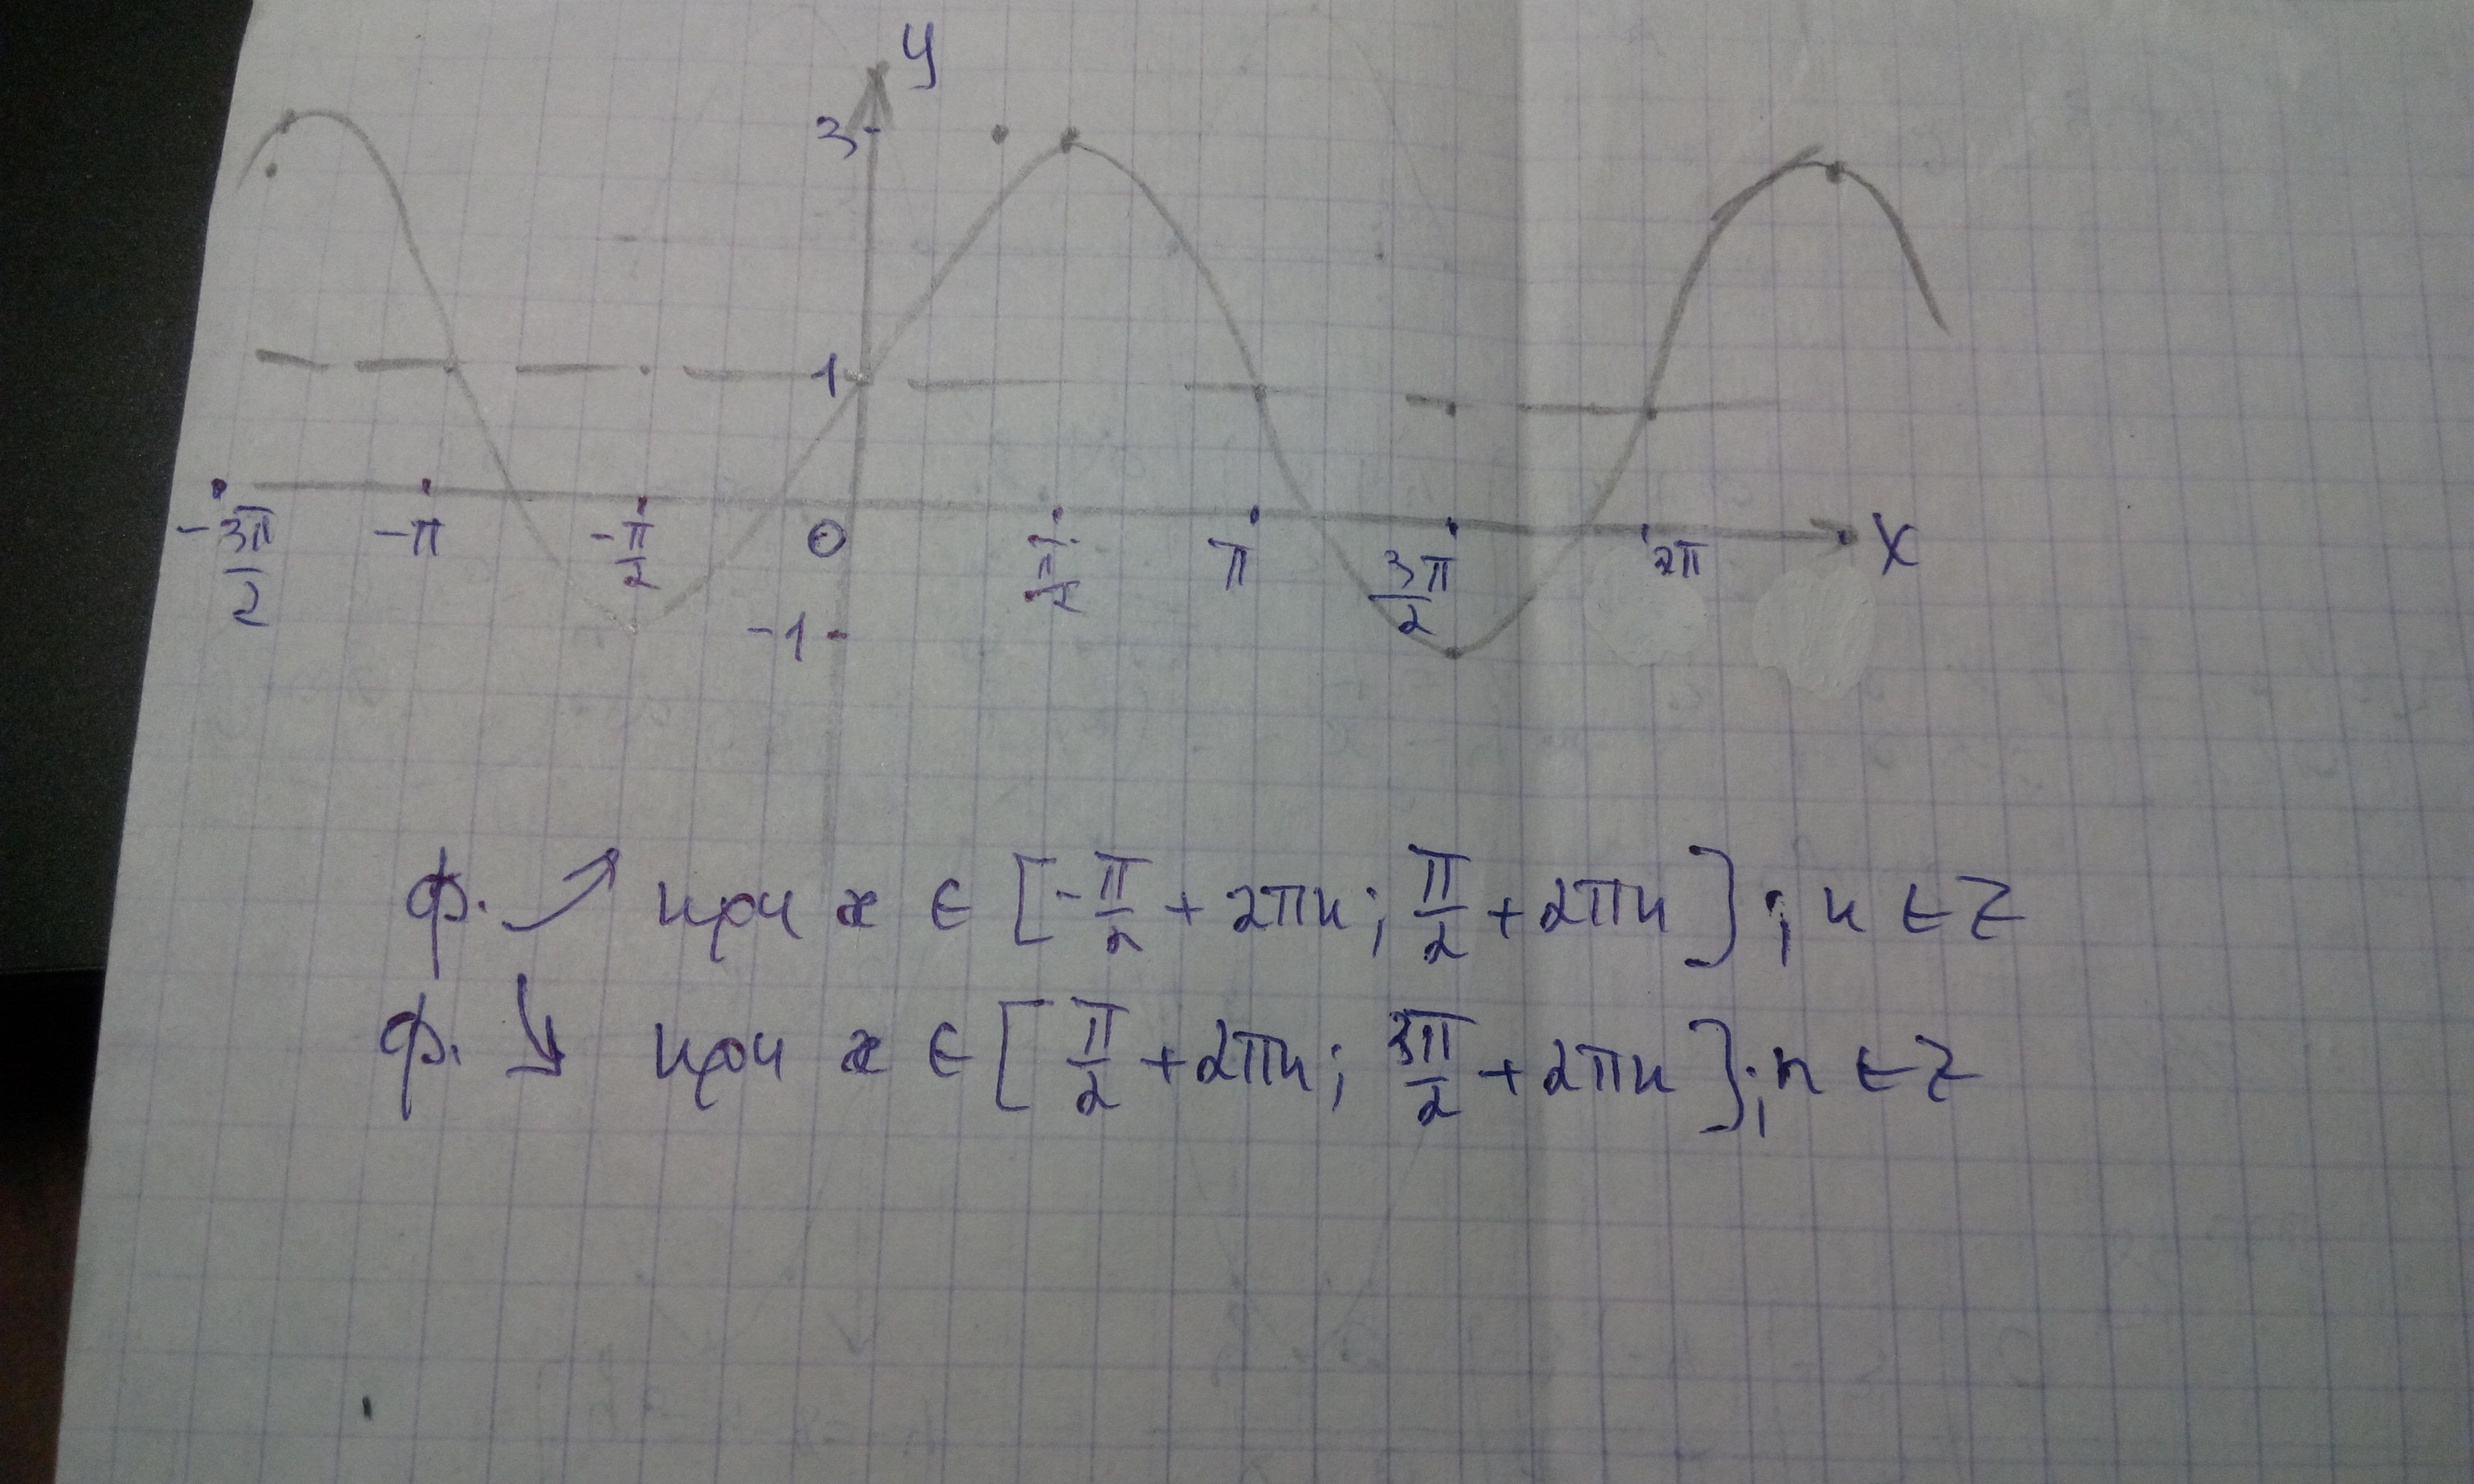 y
3
1
-3π/2 -π -π/2 0 π/2 π 3π/2 2π x
-1
ф. ↗ при x ∈ [-π/2 + 2πn; π/2 + 2πn]; n ∈ Z
ф. ↘ при x ∈ [π/2 + 2πn; 3π/2 + 2πn]; n ∈ Z